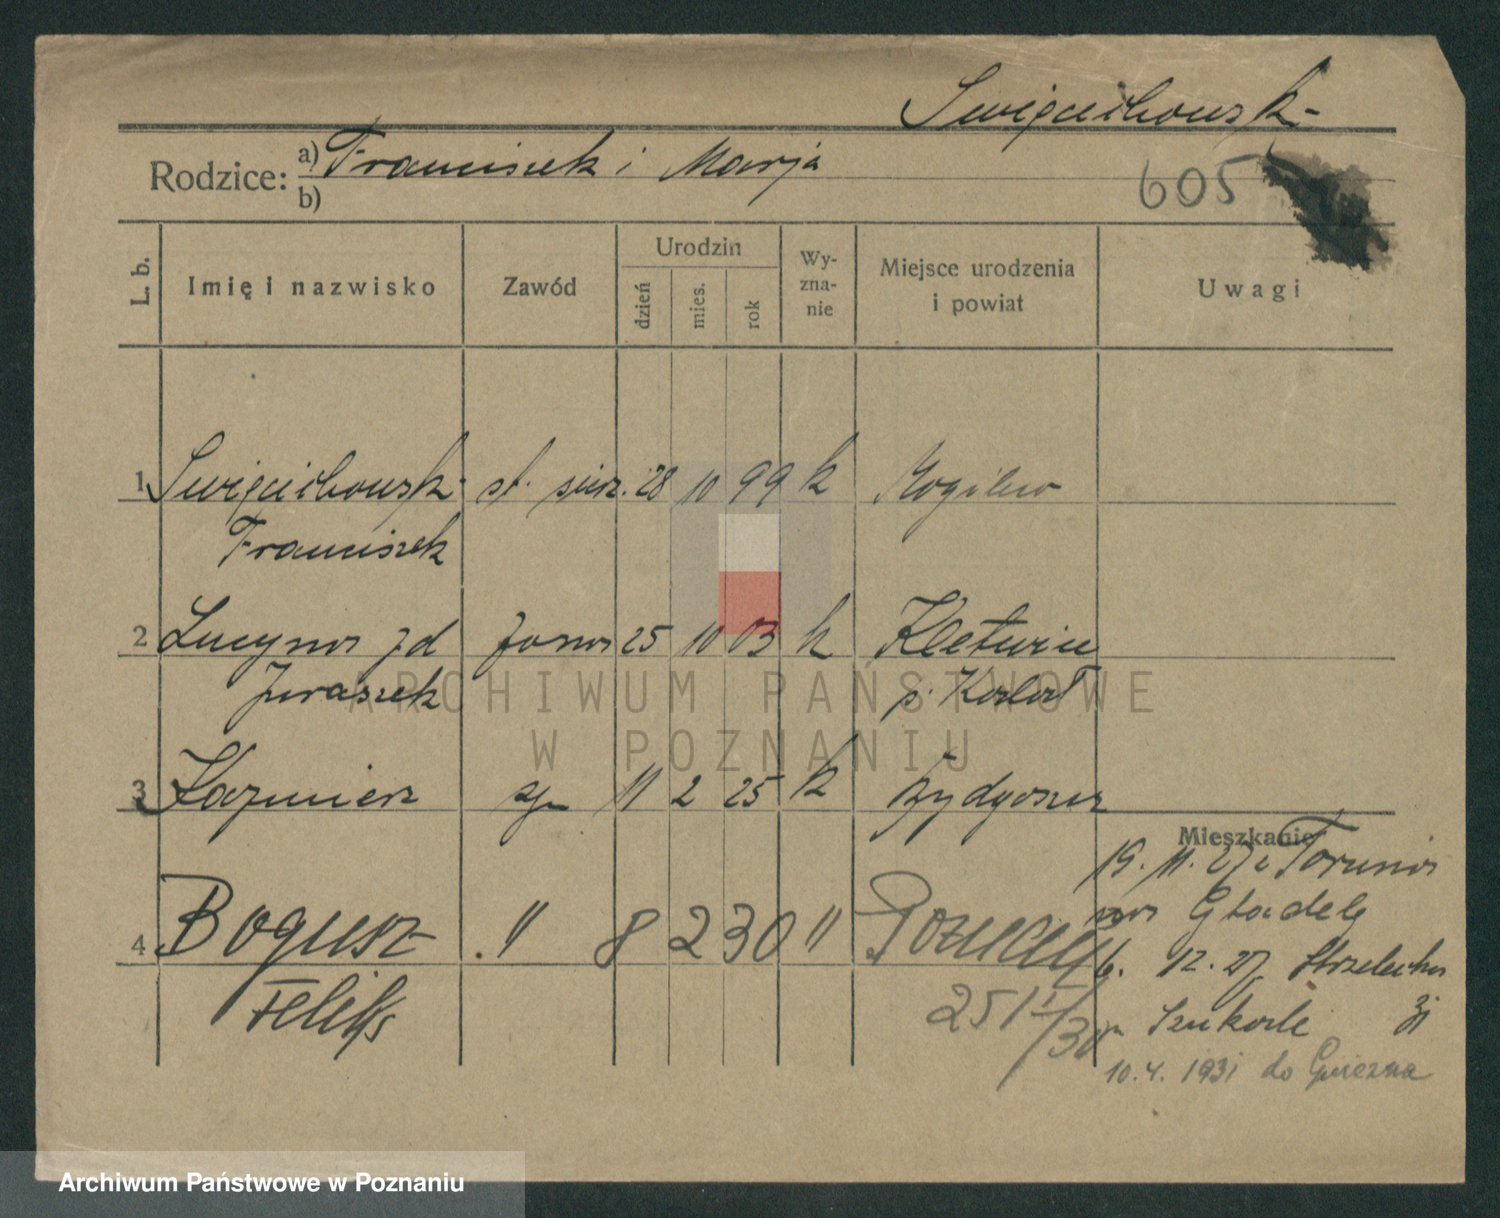 Święcichowsk-
Rodzice: a) Franciszek i Marja
b)
605
L. b.
Imię i nazwisko
Zawód
Urodzin
dzień
mies.
rok
Wy-
zna-
nie
Miejsce urodzenia
i powiat
Uwagi
1 Święcichowsk- st. sierż. 28 10 99 k Mogilno
Franciszek
2 Lucyna zd żona 25 10 03 k
Juraszek
ARCHIWUM PAŃSTWOWE
W POZNANIU
3 Kazimierz syn 11 2 25 k Bydgoszcz
Mieszkanie
19. 11. 27 z Torunia
na Cytadelę
4 Bogusz " 8 2 30 " Poznań
6. 12. 27
Feliks
251
10. 4. 1931 do Gniezna
Archiwum Państwowe w Poznaniu